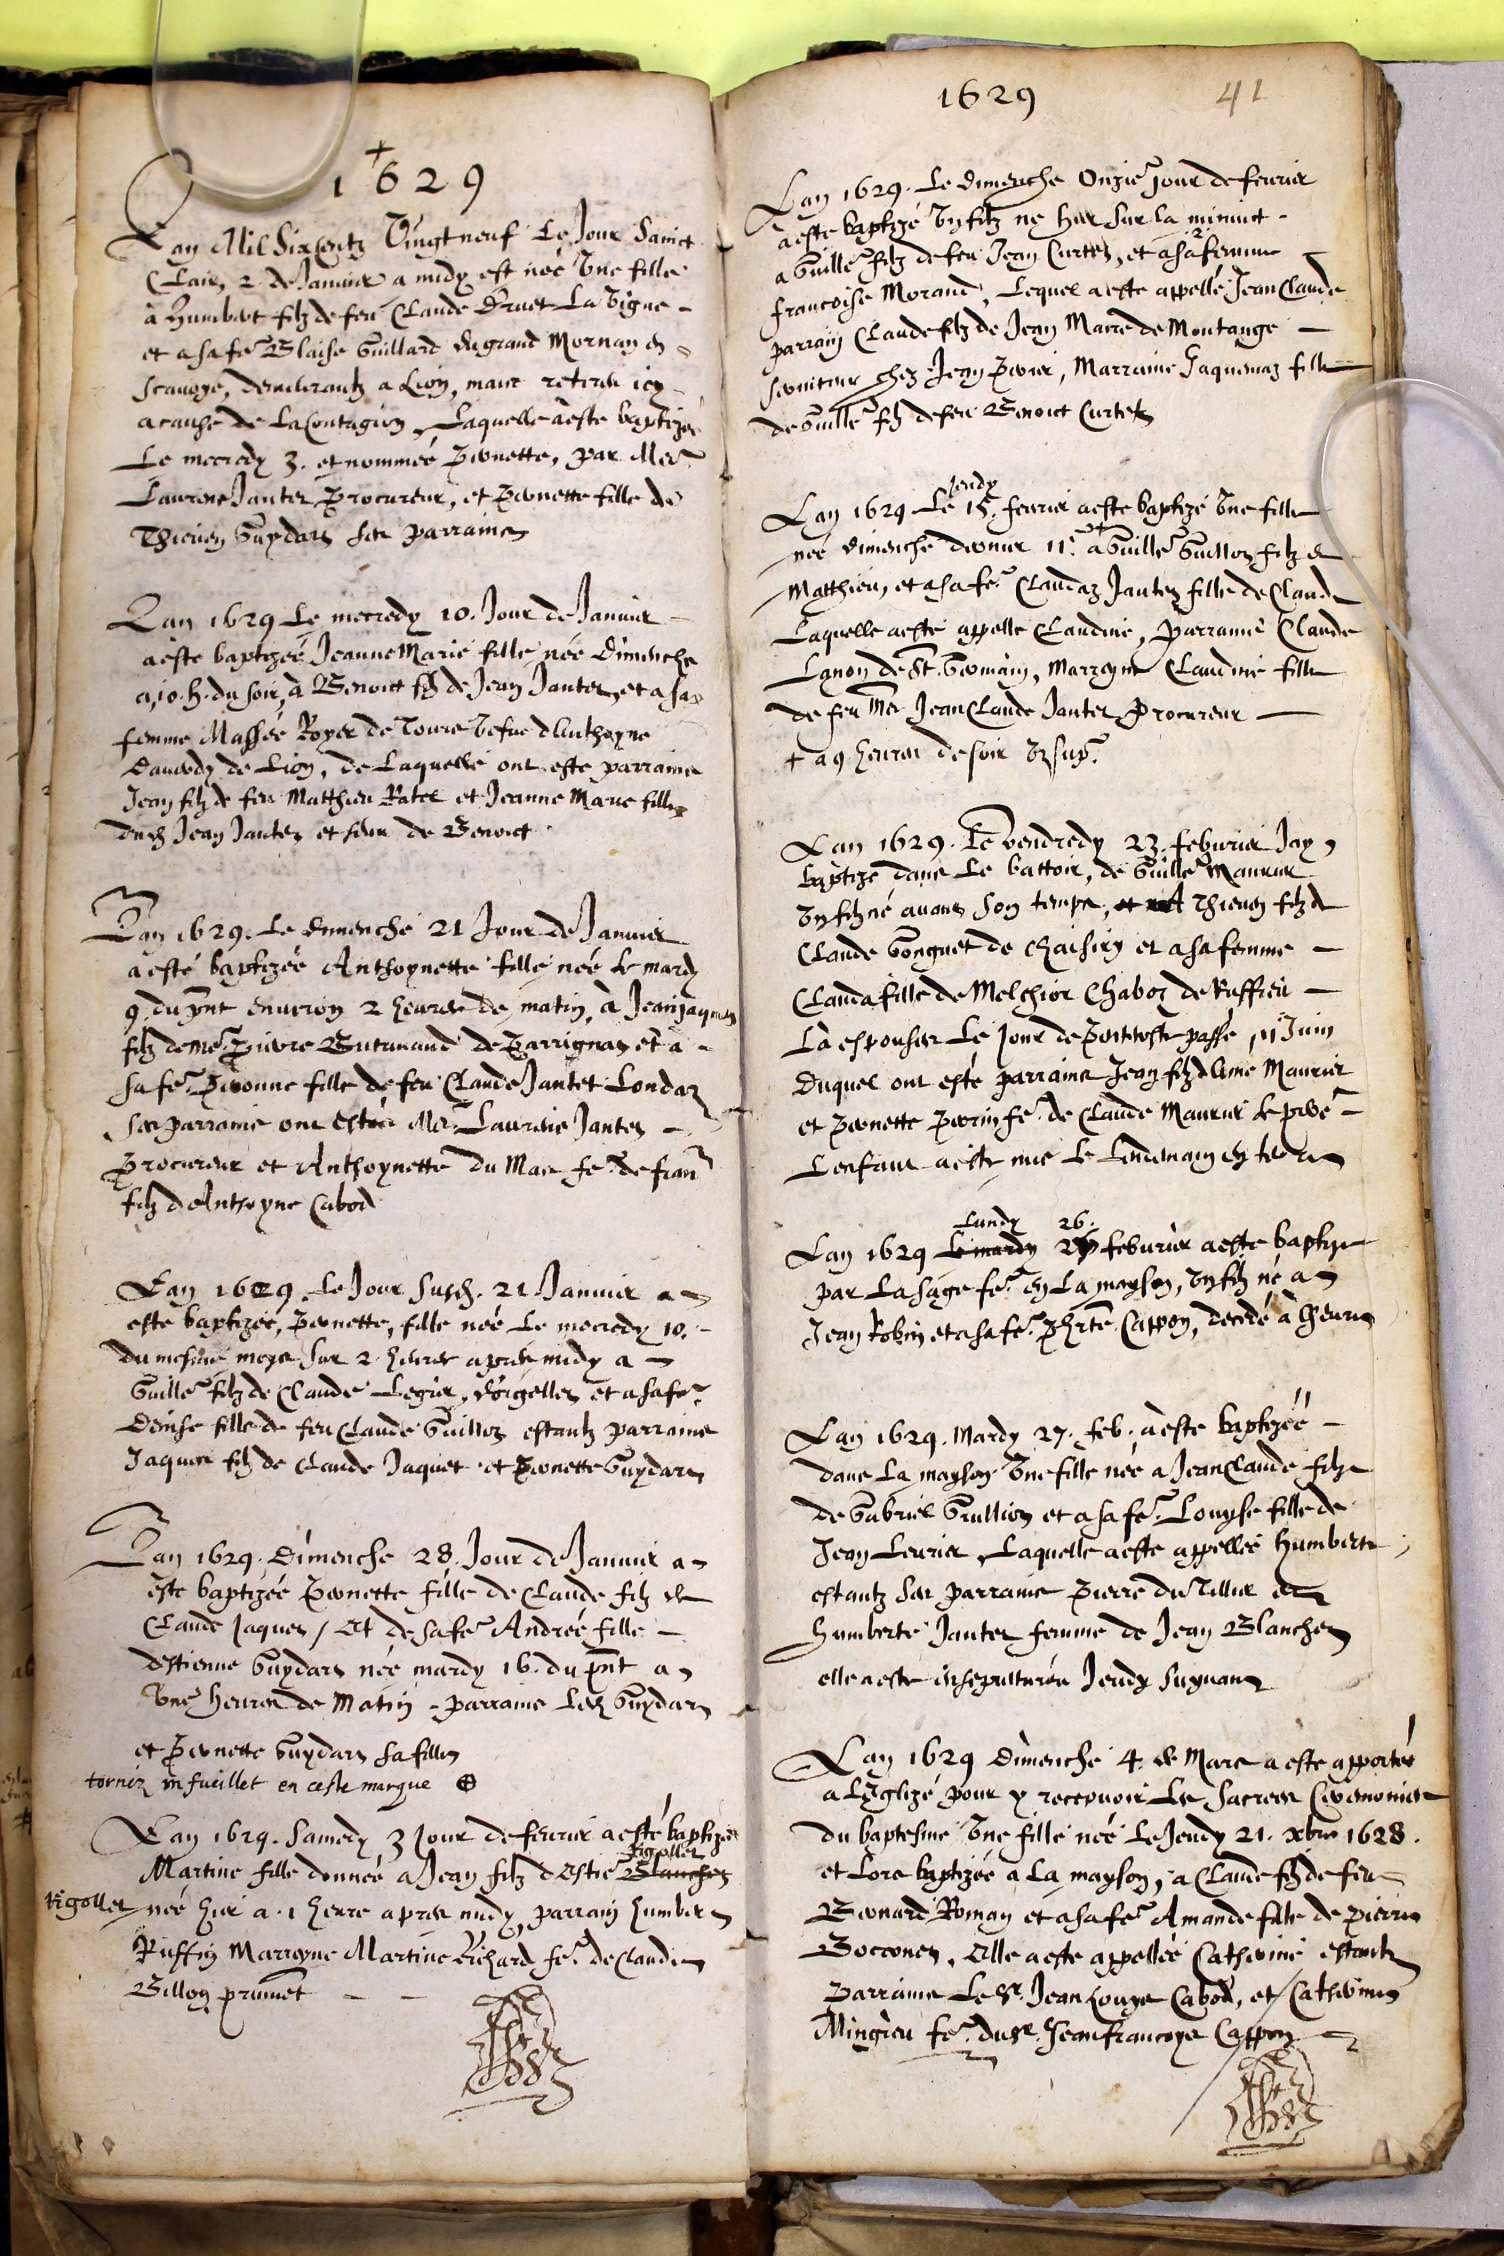 1629
Lan Mil Six Centz Vingt neuf Le Jour Sainct
Clair, 2. de Januier a midy est neé Vne fille
à Humbert filz de feu Claude Druet La Vigne -
et a sa fe Blaise Guillard du grand Mornan en
Scauoye, demeurantz a Lion, mais retires icy
a cause de La Contagion, Laquelle a este baptizeé
Le mecredy 3. et nommeé Pernette, par Me
Laurent Jantet Procureur, et Pernette fille de
Thieuen Guydars ses parrains
Lan 1629 Le mecredy 10. Jour de Januier -
a este baptizeé Jeanne Marie fille neé Dimenche
a 10. h. du soir, à Benoict fz de Jean Jantet, et a sa
femme Masseé Royer de Toure Vefue dAnthoyne
de Lion, de Laquelle ont este parrains
Jean filz de feu Matthieu Ratel et Jeanne Marie fille
dud Jean Jantet et seur de Benoict
Lan 1629. Le dimenche 21 Jour de Januier
a esté baptizeé Anthoynette fille neé le mardy
9. du pnt enuiron 2 heures de matin, à Jean jaques
filz de me Pierre Buttinand de Parrignas et à -
sa fe Peronne fille de feu Claude Jantet Londaz
Ses parrains ont estés Me Laurens Jantet -
Procureur et Anthoynette du Mas fe de fran
filz dAnthoyne Cabod
Lan 1629. Le Jour susd. 21 Januier a
este baptizeé, Pernette, fille neé Le mecredy 10. -
du mesme moys sur 2. heures apres midy a
Guille filz de Claude Legier, et a sa fe
Denise fille de feu Claude Guilloz estantz parrains
Jaques filz de Claude Jaquet et Pernette Guydars
Lan 1629. Dimenche 28. Jour de Januier a
este baptizeé Pernette fille de Claude filz de
Claude Jaques / Et de sa fe Andreé fille -
dEstienne Guydars neé mardy 16. du pnt a
Vne heure de Matin - parrains Led Guydars
et Pernette Guydars sa fille
tornéz vn fueillet en ceste marque ⊕
Lan 1629. Samedy 3 Jour de feurier a esté baptizeé
Tigollet
Martine fille donneé a Jean filz dEstie Blanchet
tigollet neé hier a 1 heure apres midy, parrain humbert
Ruffin Marrayne Martine Richard fe de Claude
Billon
1629 41
Lan 1629. Le dimenche Onzie jour de feurier
a este baptizé Vn filz ne hier sur la minuict -
a Guille filz de feu Jean Curtet, et a sa 2 femme
francoise Morand, Lequel a este appellé Jean Claude
parrain Claude filz de Jean Marre de Montange -
seruiteur chez Jean Perier, Marraine Jaquemaz fille
de Guille fz de feu Benoict Curtet
jeudy
Lan 1629 Le 15. feurier a este baptizé Vne fille
neé dimenche dernier 11. + a Guille Guilloz filz de
Matthieu, et a sa fe Claudaz Jantet fille de Claude
Laquelle a este appelle Claudine, parrains Claude
de St. Germain, Marrayne Claudine fille
de feu Me Jean Claude Jantet Procureur -
+ a 9 heures de soir
Lan 1629. Le vendredy 23. feburier Jay
baptize dans Le battoir, de Guille Maurier
Vn filz né auant son temps, A Thieuen filz de
Claude Gonguet de Chaisiry et a sa femme -
Clauda fille de Melchior Chaboz de Ruffieu -
La espouser Le jour de Pentecoste passé, 11 Juin
Duquel ont esté parrains Jean filz dAme Maurier
et Pernette Perrin fe de Claude Maurier le pere -
Lenfant a este mis Le Lendemain en terre
Lundy 26.
Lan 1629 Le mardy 27 feburier a este baptize
par La sage fe en La mayson, Vn filz né a
Jean Robin et a sa fe Cappon, decedé à lheure
Lan 1629. Mardy 27. feb. a este baptizeé -
dans La mayson Vne fille neé a Jean Claude filz
de Gabriel Grullion et a sa fe Louyse fille de
Jean Leurier, Laquelle a este appelleé Humberte
estantz ses parrains Pierre du Tillier et
humberte Jantet femme de Jean Blanchet
elle a este ensepulturée Jeudy suyuant
Lan 1629 Dimenche 4. de Mars a este apporteé
a LEglize pour y recepuoir Les Sacrees Ceremonies
du baptesme Vne fille neé Le Jeudy 21. xbre 1628.
et Lors baptizeé a La mayson, a Claude fz de feu
Bernard Roman et a sa fe Amande fille de pierre
Elle a este appelleé Catherine estantz
Parrains Le Sr. Jean Louys Cabod, et Catherine
Mingieu fe du Sr. Jean francoys Cappon